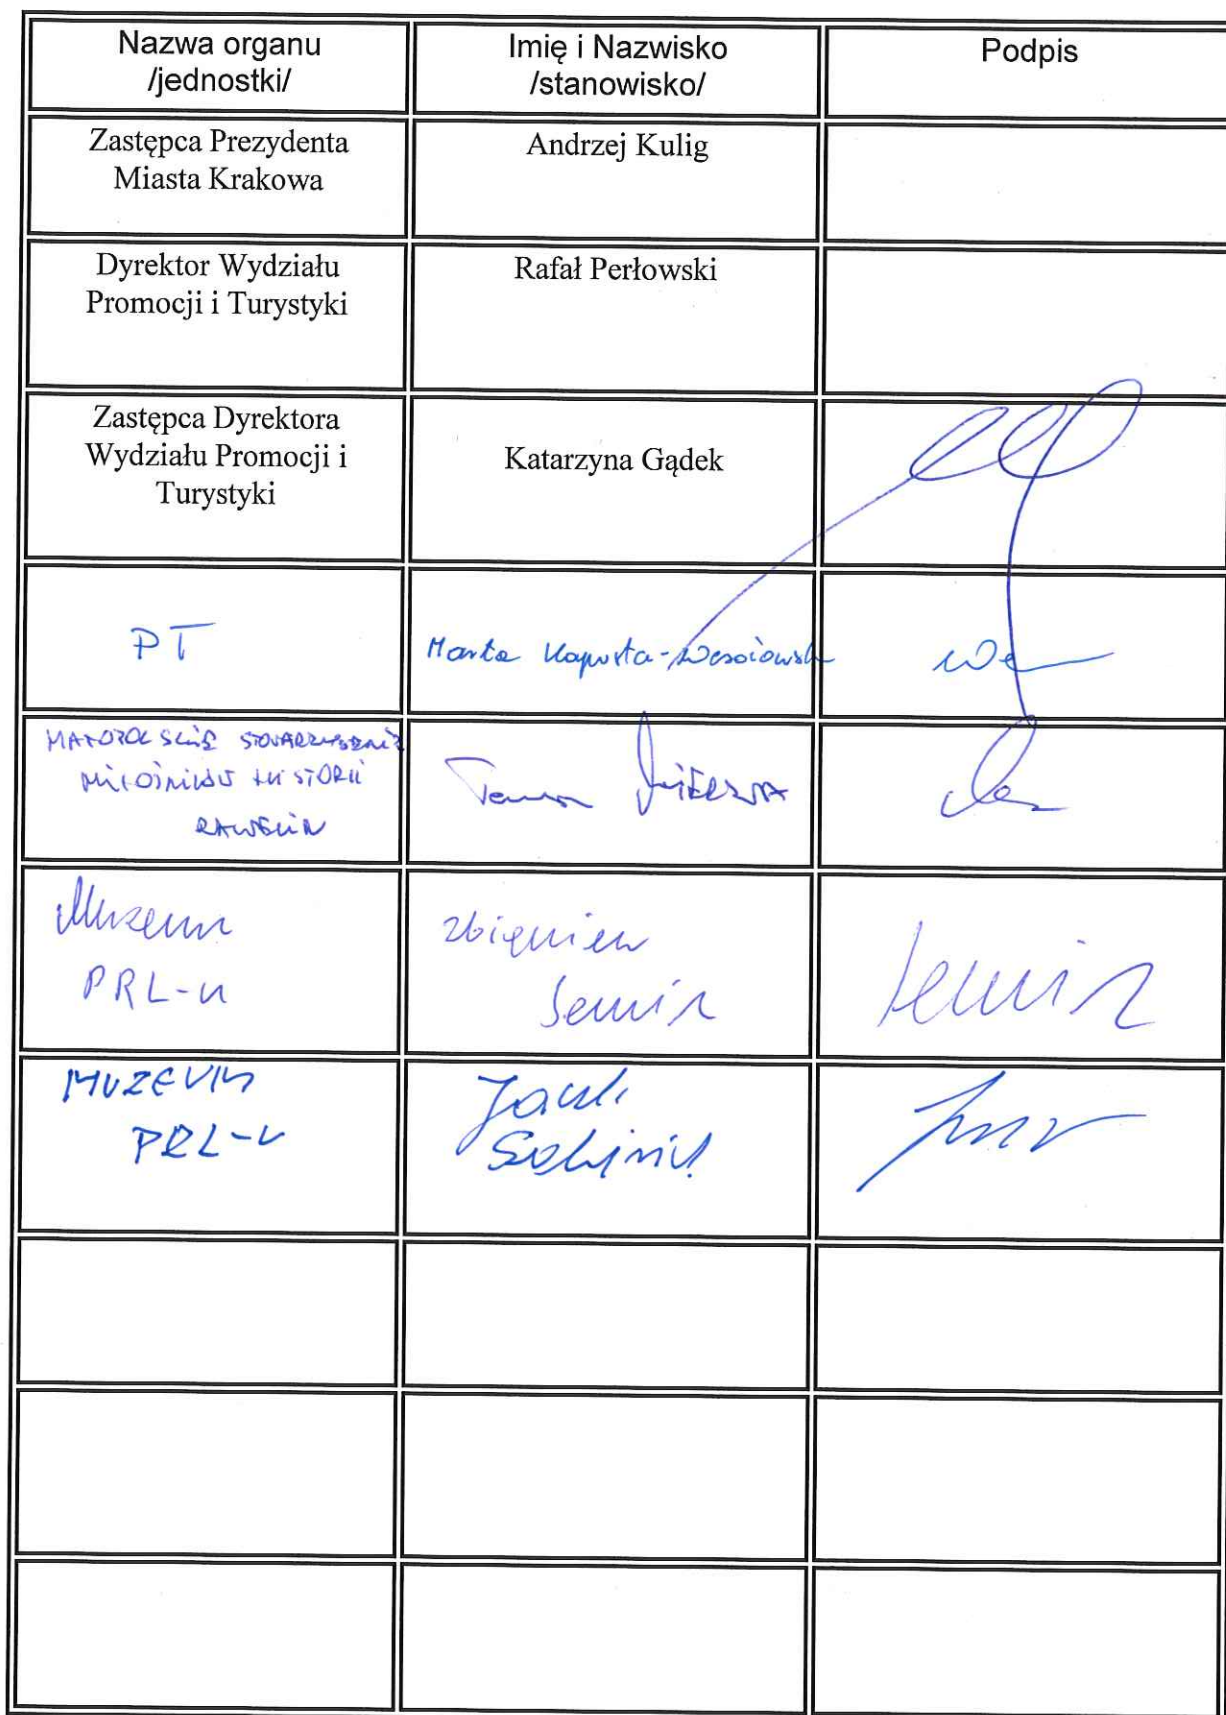 Nazwa organu
/jednostki/
Imię i Nazwisko
/stanowisko/
Podpis
Zastępca Prezydenta
Miasta Krakowa
Andrzej Kulig
Dyrektor Wydziału
Promocji i Turystyki
Rafał Perłowski
Zastępca Dyrektora
Wydziału Promocji i
Turystyki
Katarzyna Gądek
PT
Marta Kapusta-
MAŁOPOLSKIE STOWARZYSZENIE
MIŁOŚNIKÓW HISTORII
RAWELIN
Muzeum
PRL-u
Zbigniew
Semik
MUZEUM
PRL-u
Jacek